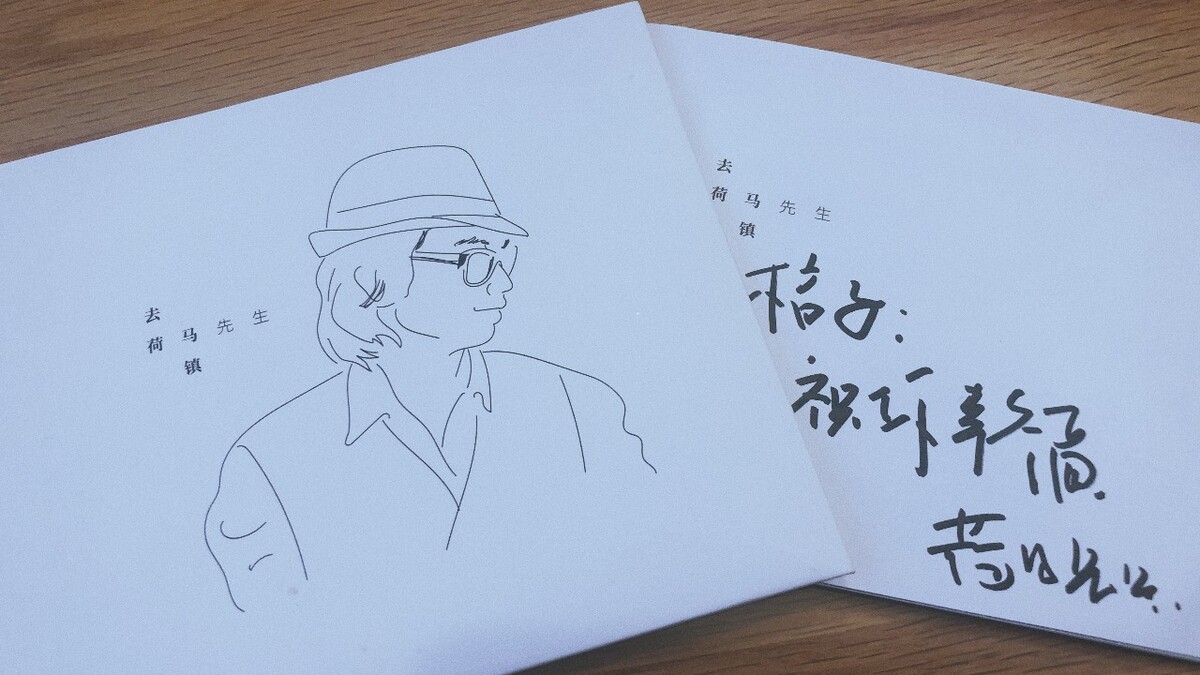 去
荷马先生
镇
去
荷马先生
镇
桔子:
祝 幸福.
荷马先生